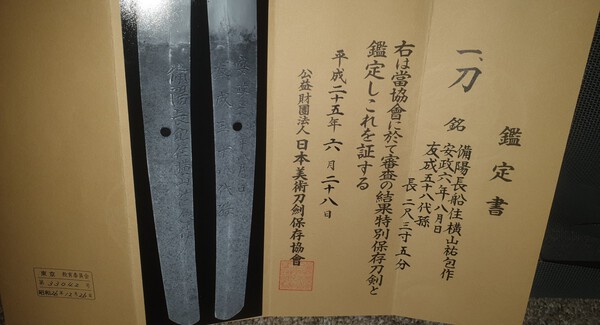 鑑定書
一、刀
銘 備陽長船住横山祐包作
安政六年八月日
友成五十八代孫
長 二尺三寸五分
右は當協會に於て審査の結果特別保存刀剣と
鑑定しこれを証する
平成二十五年六月二十八日
公益財團法人 日本美術刀剣保存協會
備陽長
東京